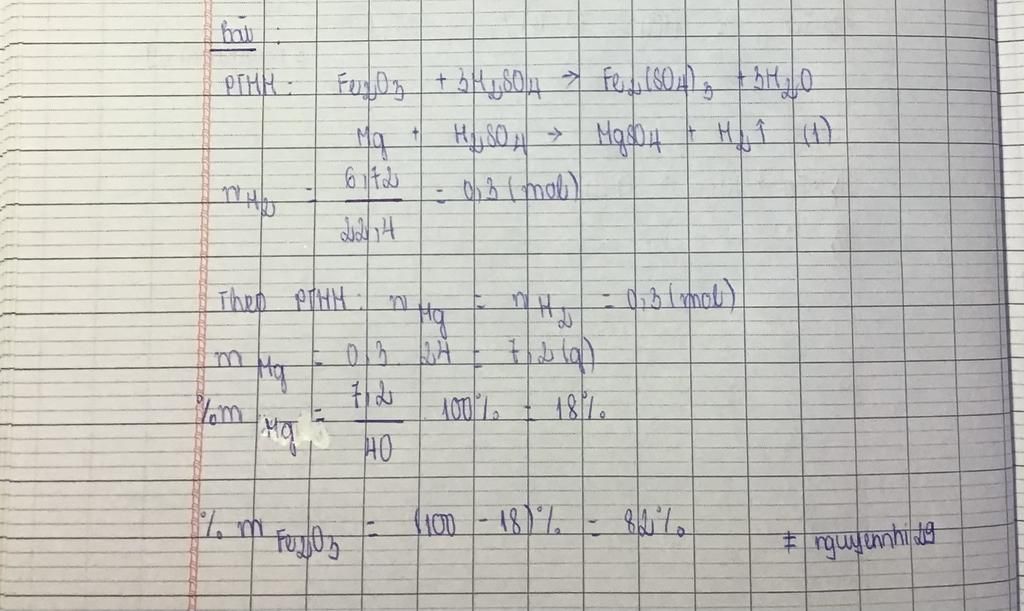 Bài :
PTHH: Fe₂O₃ + 3H₂SO₄ → Fe₂(SO₄)₃ + 3H₂O
Mg + H₂SO₄ → MgSO₄ + H₂↑ (1)
n H₂ = 6,72 / 22,4 = 0,3 (mol)
Theo PTHH: n Mg = n H₂ = 0,3 (mol)
m Mg = 0,3 24 = 7,2 (g)
%m Mg = 7,2 / 40 100% = 18%
% m Fe₂O₃ = (100 - 18)% = 82%
# nguyennhi29